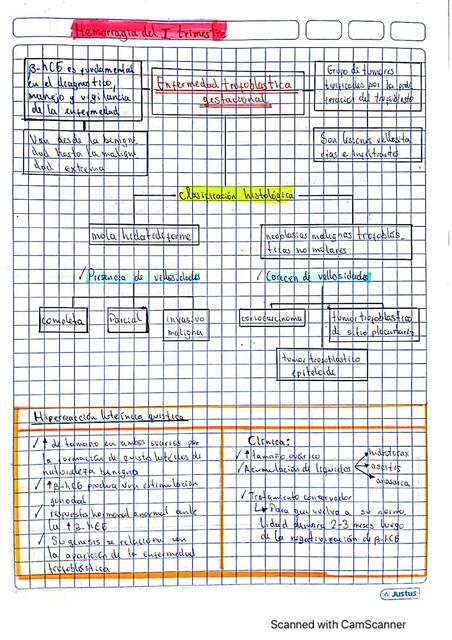 Hemorragia del I trimestre
β-hCG es fundamental
en el diagnostico,
manejo y vigilancia
de la enfermedad
Enfermedad trofoblastica
gestacional
Grupo de tumores
tipificados por la proli
feracion del trofoblasto
Van desde la benig
nidad hasta la malig
dad extrema
Son lesiones vellosita
rias e infiltrantes
Clasificación histológica
mola hidatidiforme
neoplasias malignas trofoblás_
ticas no molares
/ Presencia de vellosidades
/ Carecen de vellosidades
completa
Parcial
invasiva
maligna
coriocarcinoma
tumor trofoblastico
de sitio placentario
tumor trofoblastico
epitelioide
Hiperreacción luteinica quistica
✓ ↑ de tamaño en ambos ovarios por
la formación de quistes luteicos de
naturaleza benigna
✓ ↑ β-hCG produce una estimulación
gonodal
✓ respuesta hormonal anormal ante
la ↑ β-hCG
✓ Su genesis se relaciona con
la aparición de la enfermedad
trofoblástica
Clinica:
✓ ↑ tamaño ovárico
✓ Acumulación de liquidos
hidrotorax
ascitis
anasarca
✓ Tratamiento conservador
↳ Para que vuelva a su norma_
lidad demora 2-3 meses luego
de la negativización de β-hCG
Justus
Scanned with CamScanner